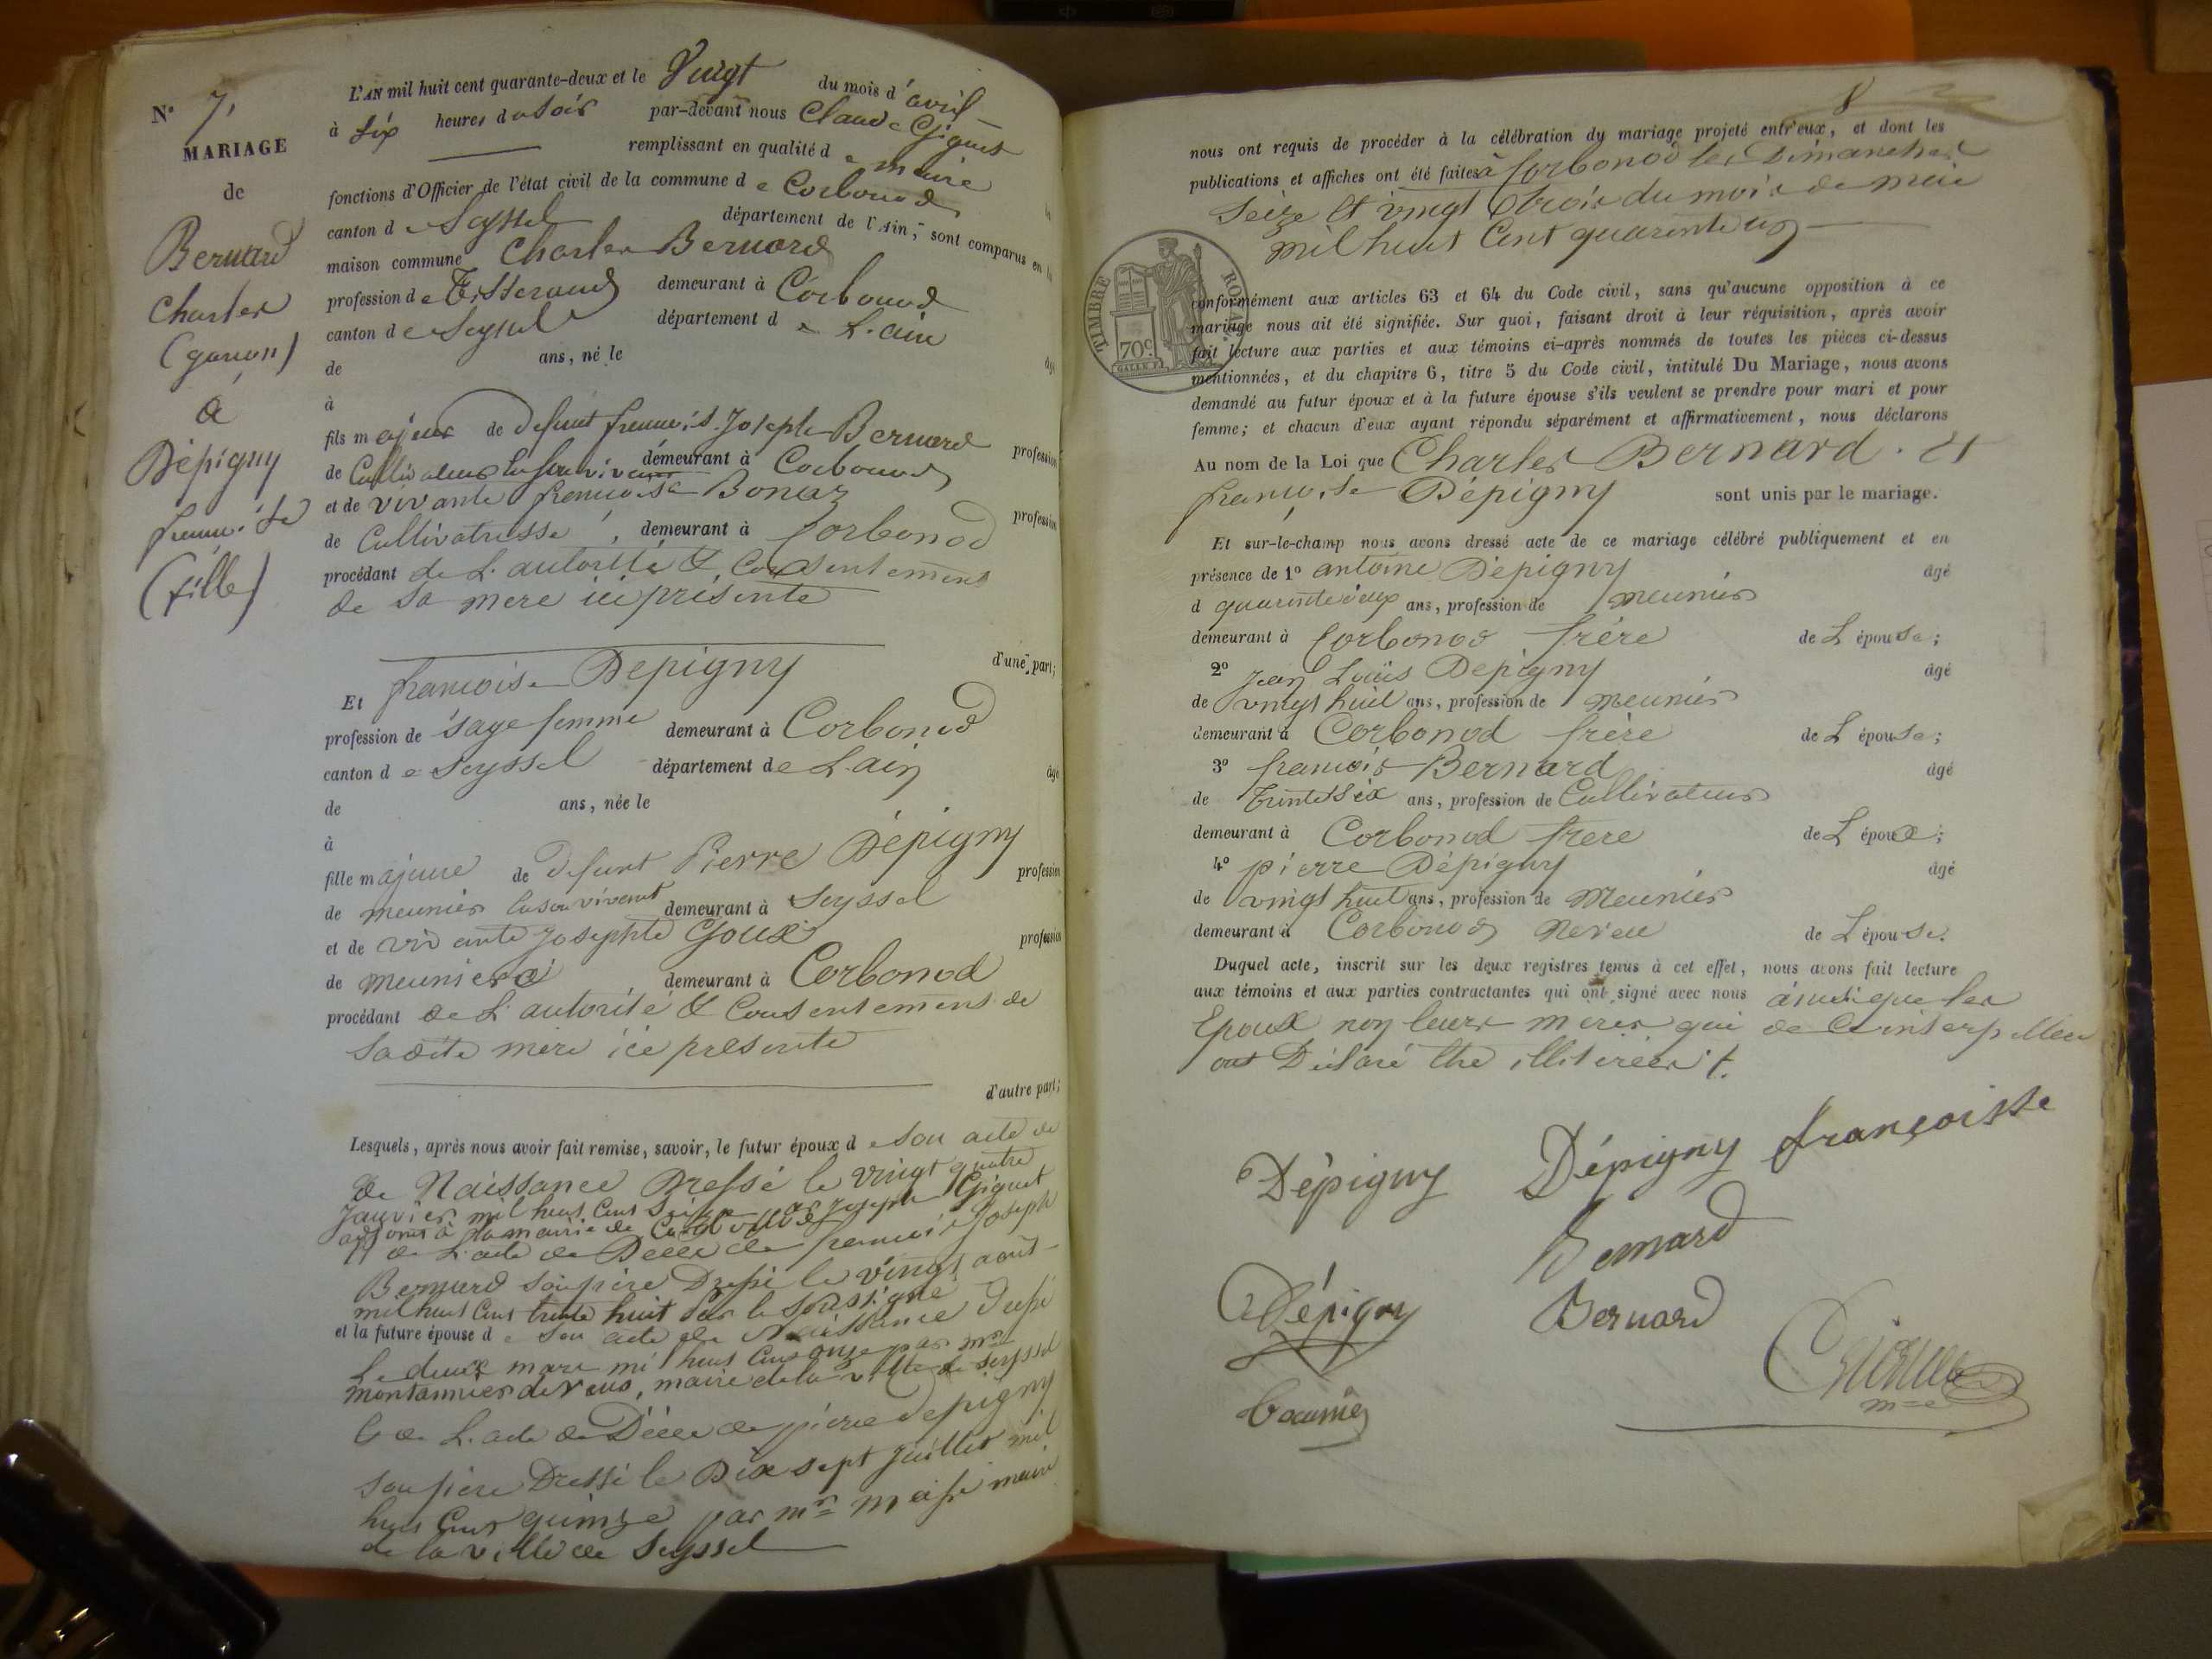 N° 7,
MARIAGE
de
Bernard
Charles
(garçon)
&
Dépigny
françoise
(fille)
L'AN mil huit cent quarante-deux et le Vingt du mois d'avril
à six heures du soir par-devant nous Claude Giguet
remplissant en qualité de maire
fonctions d'Officier de l'état civil de la commune de Corbonod
canton de Seyssel département de l'Ain; sont comparus en la
maison commune Charles Bernard
profession de Tisserand demeurant à Corbonod
canton de Seyssel département de L'ain âgé
de ans, né le
à
fils majeur de défunt françois Joseph Bernard profession
de Cultivateur lui survivant demeurant à Corbonod
et de vivante françoise Bonaz profession
de Cultivatrisse, demeurant à Corbonod
procédant de L'autorité & Consentement
de sa mere ici présente
d'une part;
Et francoise Dépigny
profession de sage femme demeurant à Corbonod
canton de Seyssel département de L'ain âgé
de ans, née le
à
fille majeure de défunt Pierre Dépigny profession
de meunier lui survivant demeurant à Seyssel
et de vivante josephte Goux profession
de meuniere demeurant à Corbonod
procédant de L'autorité & Consentement de
sadite mère ici présente
d'autre part;
Lesquels, après nous avoir fait remise, savoir, le futur époux de son acte de
de Naissance Dressé le vingt quatre
Janvier mil huit Cent seize par Joseph Giguet
adjoint à la mairie de Corbonod
& de L'acte de Décès de françois Joseph
Bernard son père Dressé le vingt août
mil huit Cent trente huit par le soussigné
et la future épouse de son acte de Naissance Dressé
Le deux mars mil huit Cent onze par mr
montannier de Veus, maire de la ville de Seyssel
& de L'acte de Décès de pierre Dépigny
son père Dressé le Dix sept juillet mil
huit Cent quinze par mr maire
de la ville de Seyssel
8
nous ont requis de procéder à la célébration du mariage projeté entr'eux, et dont les
publications et affiches ont été faites à Corbonod les Dimanches
seize & vingt trois du mois de mai
mil huit Cent quarente un
TIMBRE ROYAL
70c
conformément aux articles 63 et 64 du Code civil, sans qu'aucune opposition à ce
mariage nous ait été signifiée. Sur quoi, faisant droit à leur réquisition, après avoir
fait lecture aux parties et aux témoins ci-après nommés de toutes les pièces ci-dessus
mentionnées, et du chapitre 6, titre 5 du Code civil, intitulé Du Mariage, nous avons
demandé au futur époux et à la future épouse s'ils veulent se prendre pour mari et pour
femme; et chacun d'eux ayant répondu séparément et affirmativement, nous déclarons
Au nom de la Loi que Charles Bernard. &
françoise Dépigny sont unis par le mariage.
Et sur-le-champ nous avons dressé acte de ce mariage célébré publiquement et en
présence de 1° antoine Dépigny âgé
d quarente deux ans, profession de meunier
demeurant à Corbonod frère de L épouse;
2° Jean Louis Dépigny âgé
de vingt huit ans, profession de meunier
demeurant à Corbonod frère de L épouse;
3° françois Bernard âgé
de trente six ans, profession de Cultivateur
demeurant à Corbonod frere de L époux;
4° pierre Dépigny âgé
de vingt huit ans, profession de Meunier
demeurant à Corbonod Neveu de L épouse.
Duquel acte, inscrit sur les deux registres tenus à cet effet, nous avons fait lecture
aux témoins et aux parties contractantes qui ont signé avec nous ainsi que les
Epoux non leurs meres qui de Ce interpellée
ont Déclaré être illitérées
Dépigny Dépigny françoisse
Bernard
Dépigny Bernard